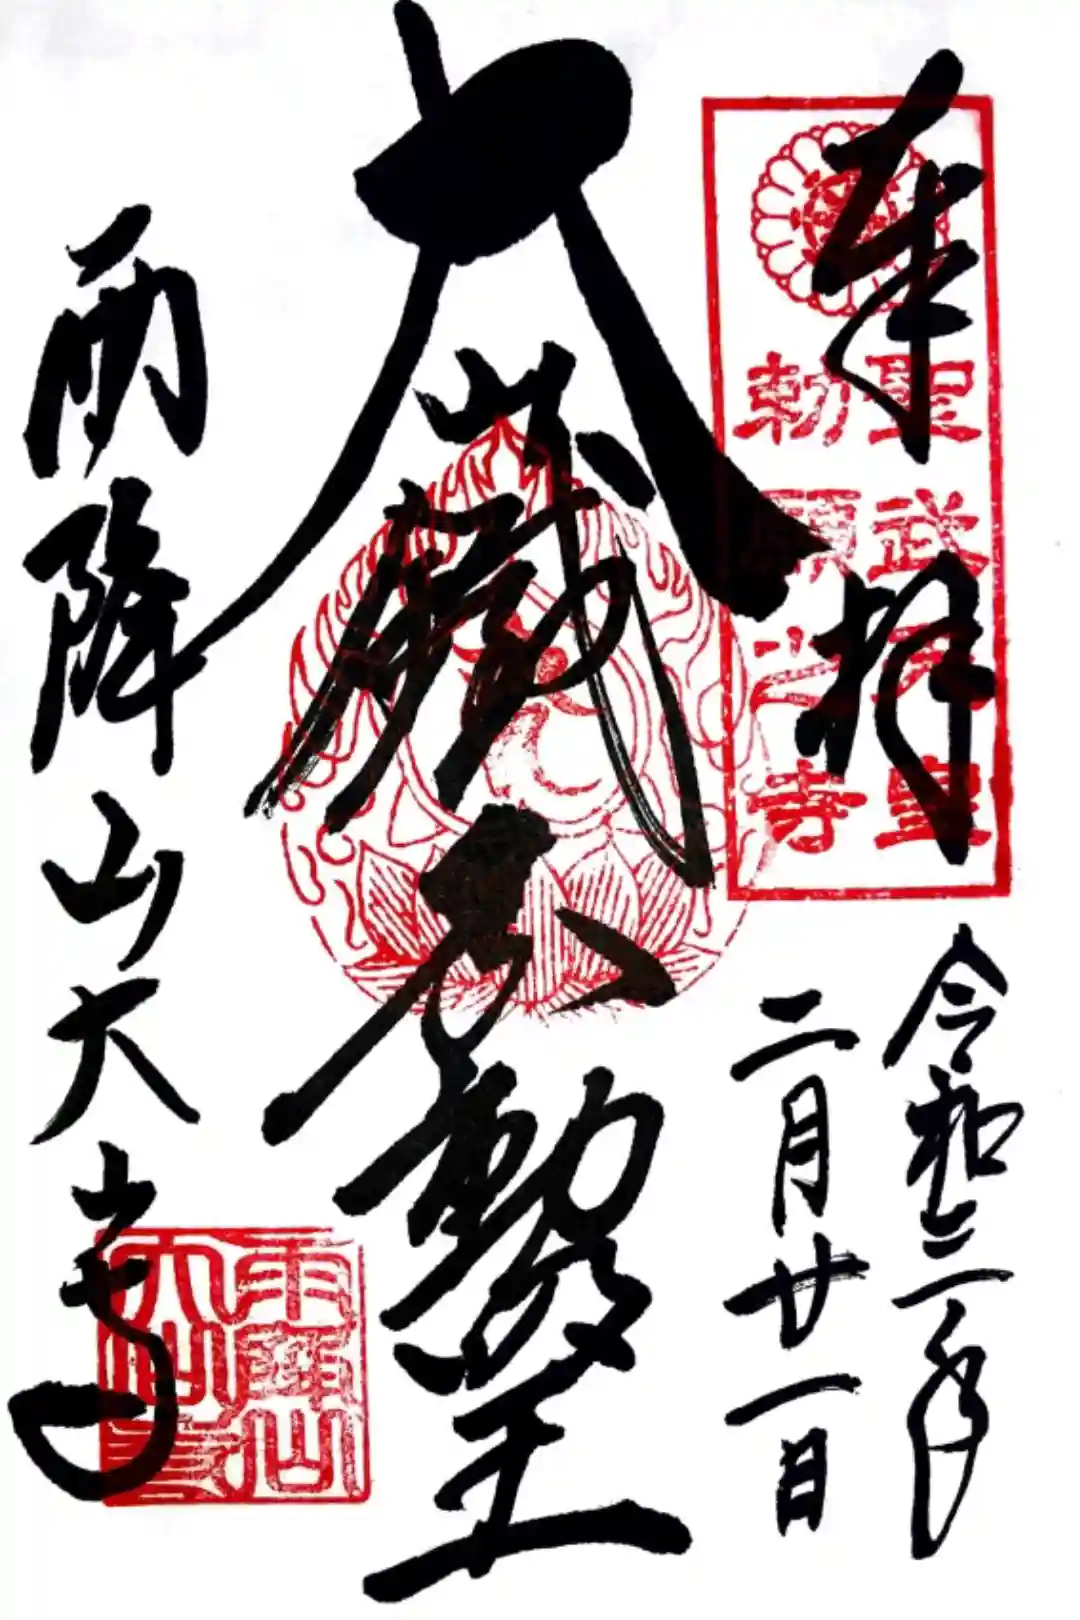 奉拝
聖武天皇
勅願之寺
令和三年
二月廿一日
大
不動
王
雨降山大山寺
雨降山
大山寺